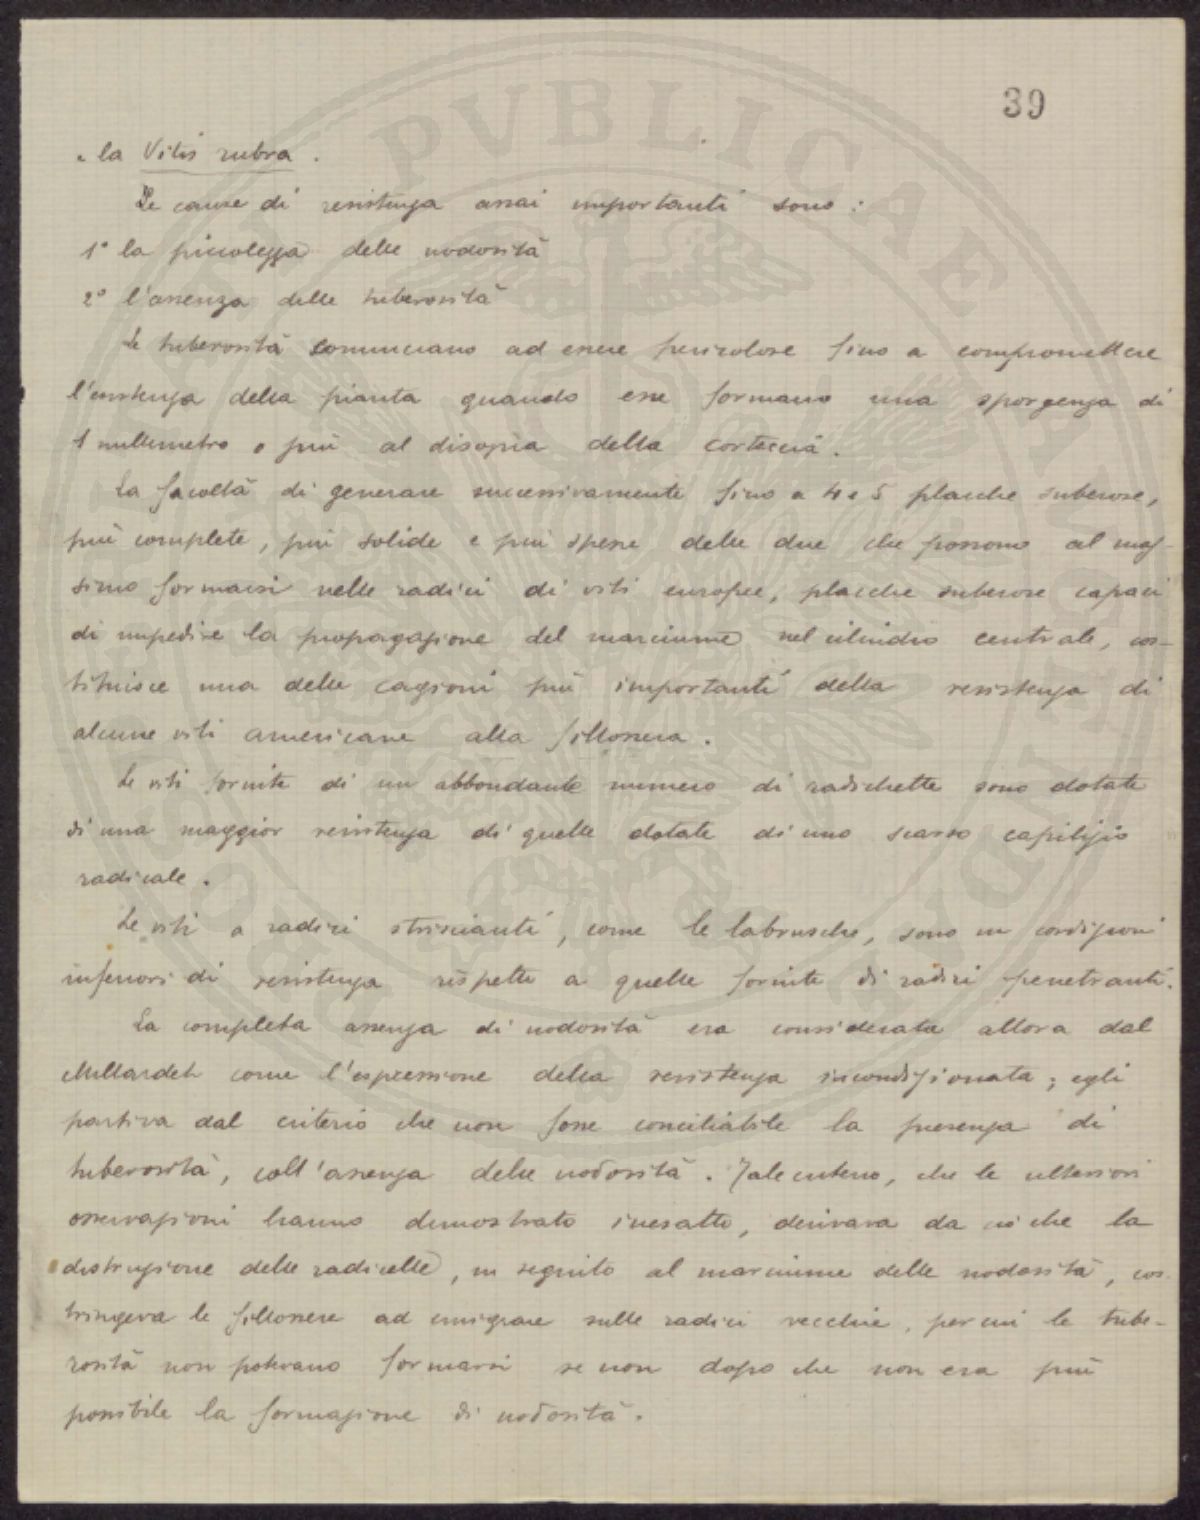 39
e la Vitis rubra.
Le cause di resistenza assai importanti sono:
1° la piccolezza delle nodosità
2° l'assenza delle tuberosità
Le tuberosità cominciano ad essere pericolose fino a compromettere
l'esistenza della pianta quando esse formano una sporgenza di
1 millimetro o più al disopra della corteccia.
La facoltà di generare successivamente fino a 4 e 5 placche suberose,
più complete, più solide e più spesse delle due che possono al mas-
simo formarsi nelle radici di viti europee, placche suberose capaci
di impedire la propagazione del marciume nel cilindro centrale, cos-
tituisce una delle cagioni più importanti della resistenza di
alcune viti americane alla fillossera.
Le viti fornite di un abbondante numero di radichette sono dotate
di una maggior resistenza di quelle dotate di uno scarso capilizio
radicale.
Le viti a radici striscianti, come le labrusche, sono in condizioni
inferiori di resistenza rispetto a quelle fornite di radici penetranti.
La completa assenza di nodosità era considerata allora dal
Millardet come l'espressione della resistenza incondizionata; egli
partiva dal criterio che non fosse conciliabile la presenza di
tuberosità, coll'assenza delle nodosità. Tale criterio, che le ulteriori
osservazioni hanno dimostrato inesatto, derivava da ciò che la
distruzione delle radicelle, in seguito al marciume delle nodosità, cos-
tringeva le fillossere ad emigrare sulle radici vecchie, per cui le tube-
rosità non potevano formarsi se non dopo che non era più
possibile la formazione di nodosità.
PVBLICAE